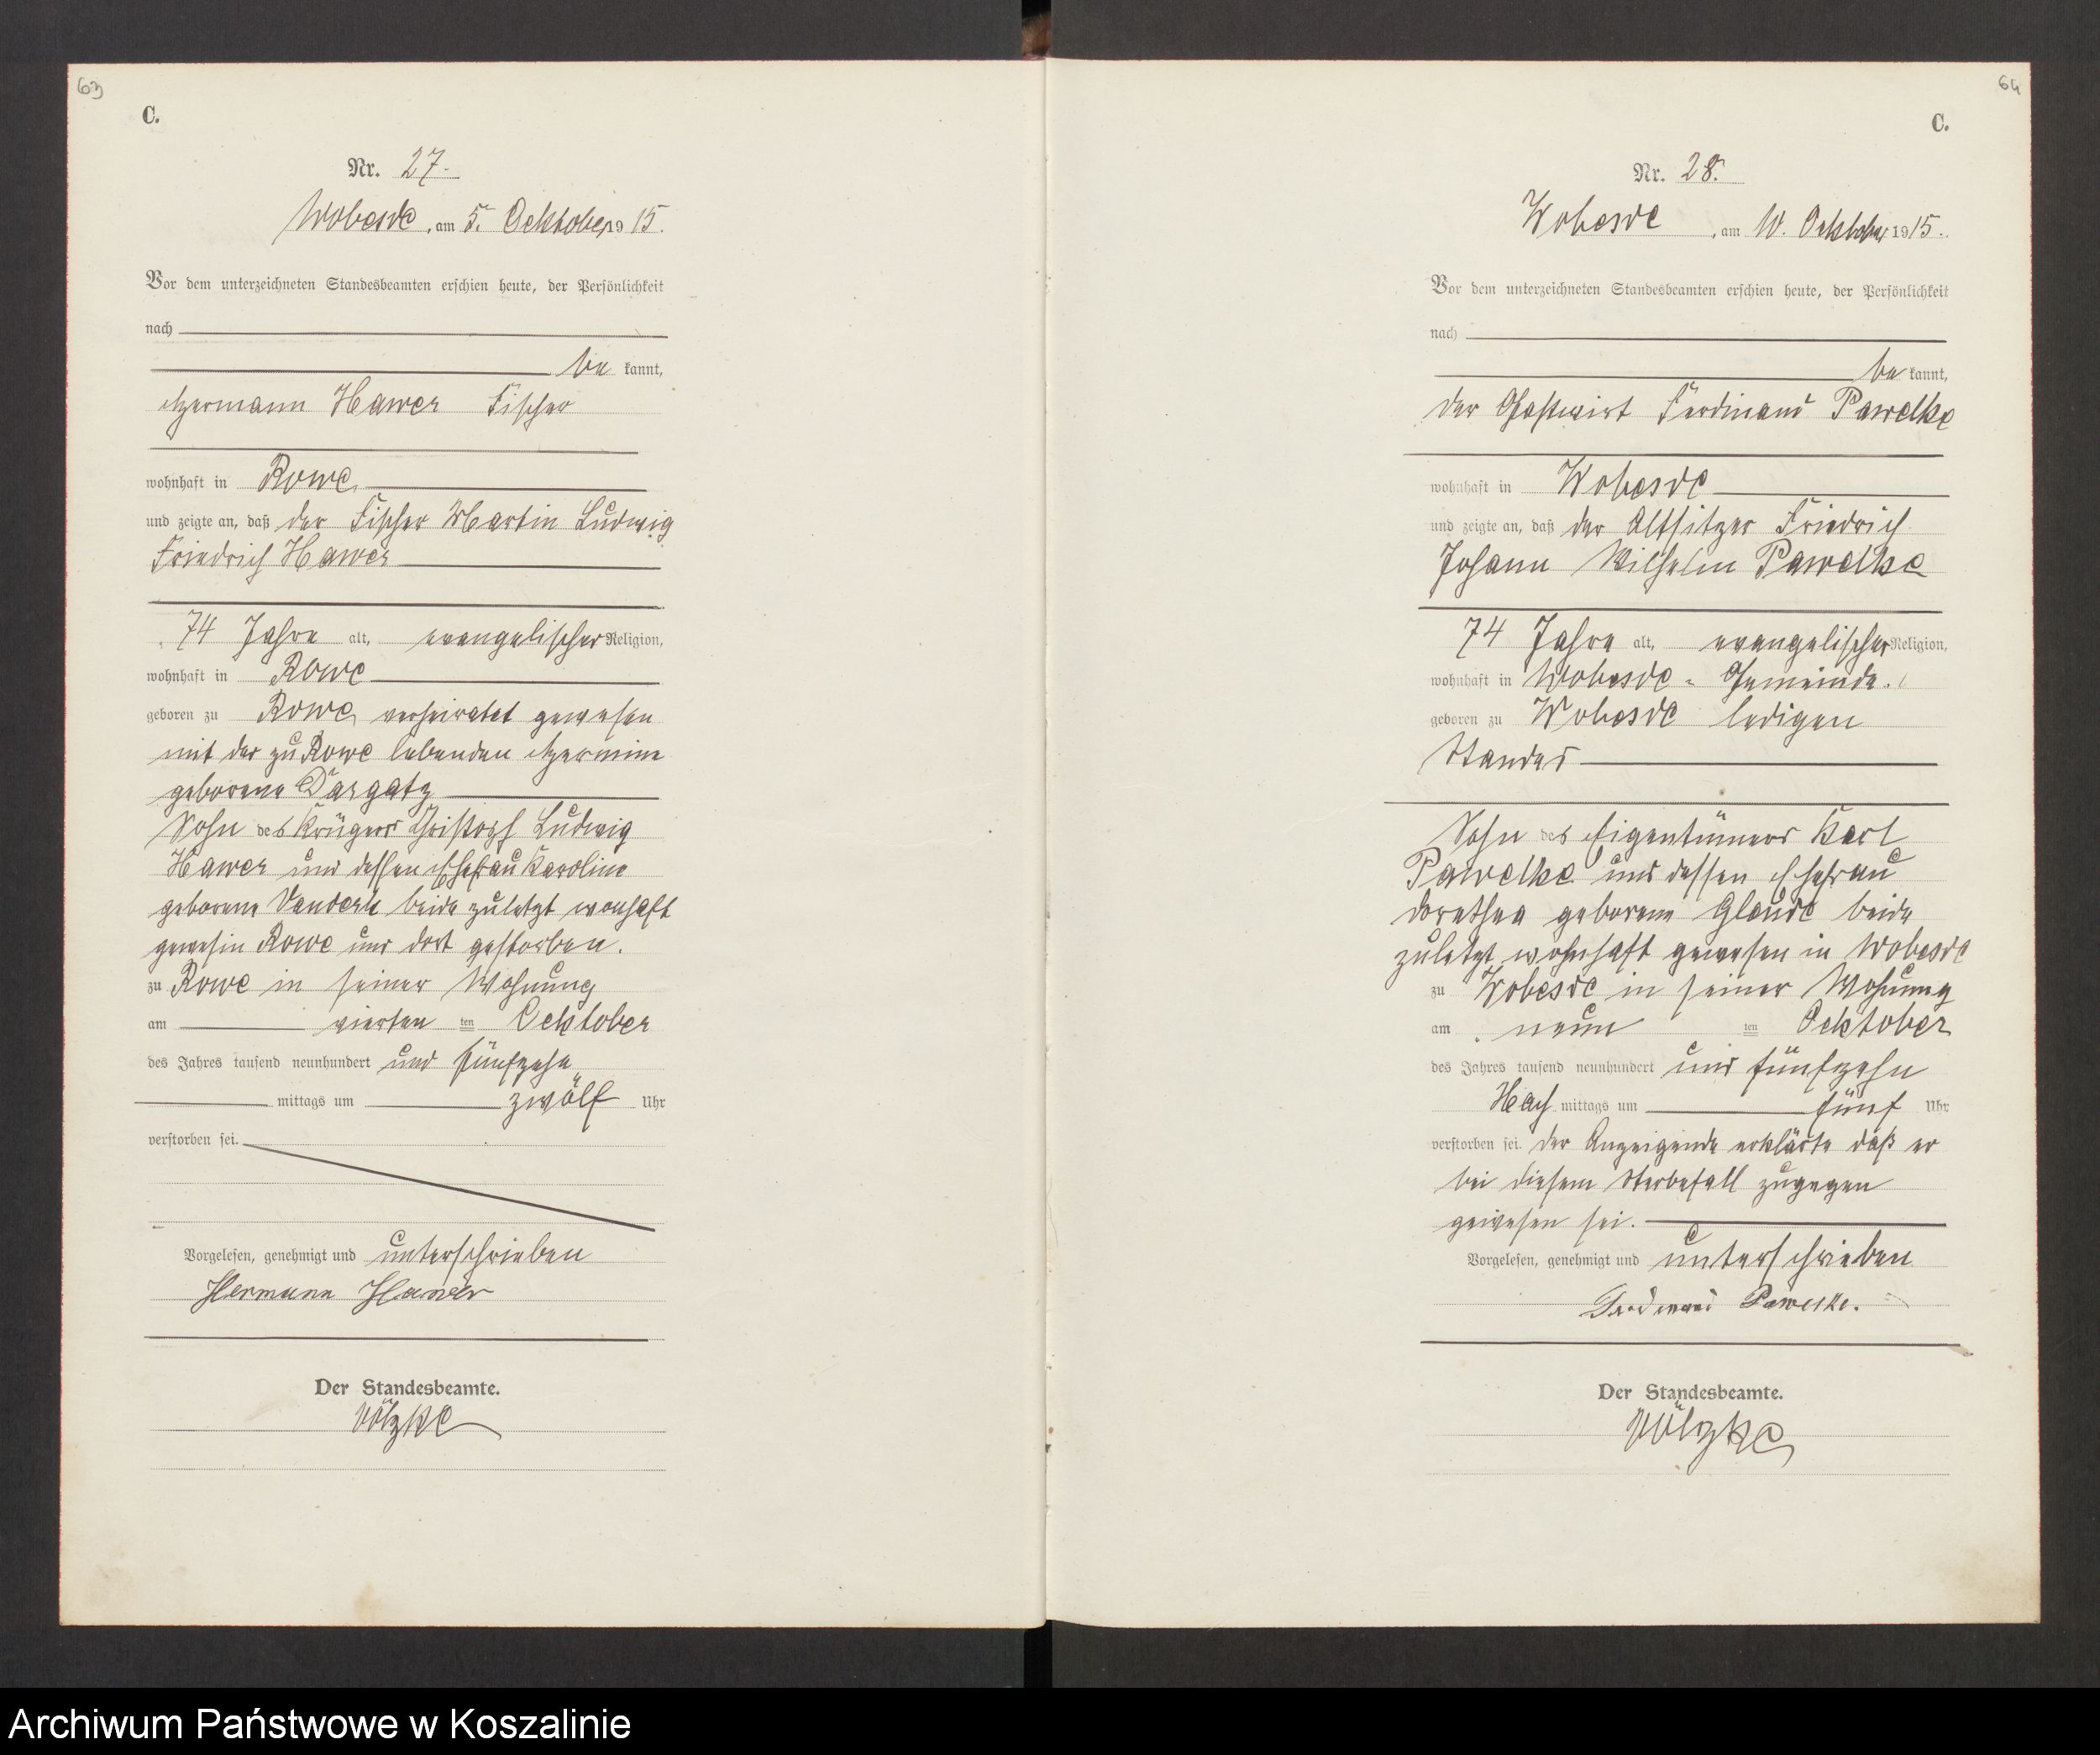 63
C.
Nr. 27.
Wobesde, am 5. Oektober 1915.
Vor dem unterzeichneten Standesbeamten erschien heute, der Persönlichkeit
nach
be kannt,
Hermann Hawer Fischer
wohnhaft in Rowe
und zeigte an, daß der Fischer Martin Ludwig
Friedrich Hawer
74 Jahre alt, evangelischer Religion,
wohnhaft in Rowe
geboren zu Rowe, verheiratet gewesen
mit der zu Rowe lebenden Hermine
geborene Dargatz
Sohn des Krügers Christoph Ludwig
Hawer und dessen Ehefrau Karoline
geborene beide zuletzt wonhaft
gewesin Rowe und dort gestorben.
zu Rowe in seiner Wohnung
am vierten ten Oektober
des Jahres tausend neunhundert und fünfzehn
mittags um zwölf Uhr
verstorben sei.
Vorgelesen, genehmigt und unterschrieben
Hermann Hawer
Der Standesbeamte.
Völzke
64
C.
Nr. 28.
Wobesde, am 10. Oektober 1915.
Vor dem unterzeichneten Standesbeamten erschien heute, der Persönlichkeit
nach
be kannt,
der Gastwirt Ferdinand Pawelke
wohnhaft in Wobesde
und zeigte an, daß der Altsitzer Friedrich
Johann Wilhelm Pawelke
74 Jahre alt, evangelischer Religion,
wohnhaft in Wobesde - Gemeinde.
geboren zu Wobesde ledigen
Standes
Sohn des Eigentümers Karl
Pawelke und dessen Ehefrau
Dorethea geborene Glaude beide
zuletzt wohnhaft gewesen in Wobesde
zu Wobesde in seiner Wohnung
am neun ten Oektober
des Jahres tausend neunhundert und fünfzehn
Nach mittags um fünf Uhr
verstorben sei. Der Anzeigende erklärte daß er
bei diesem Sterbefall zugegen
gewesen sei.
Vorgelesen, genehmigt und unterschrieben
Ferdinand Pawelke.
Der Standesbeamte.
Völzke
Archiwum Państwowe w Koszalinie